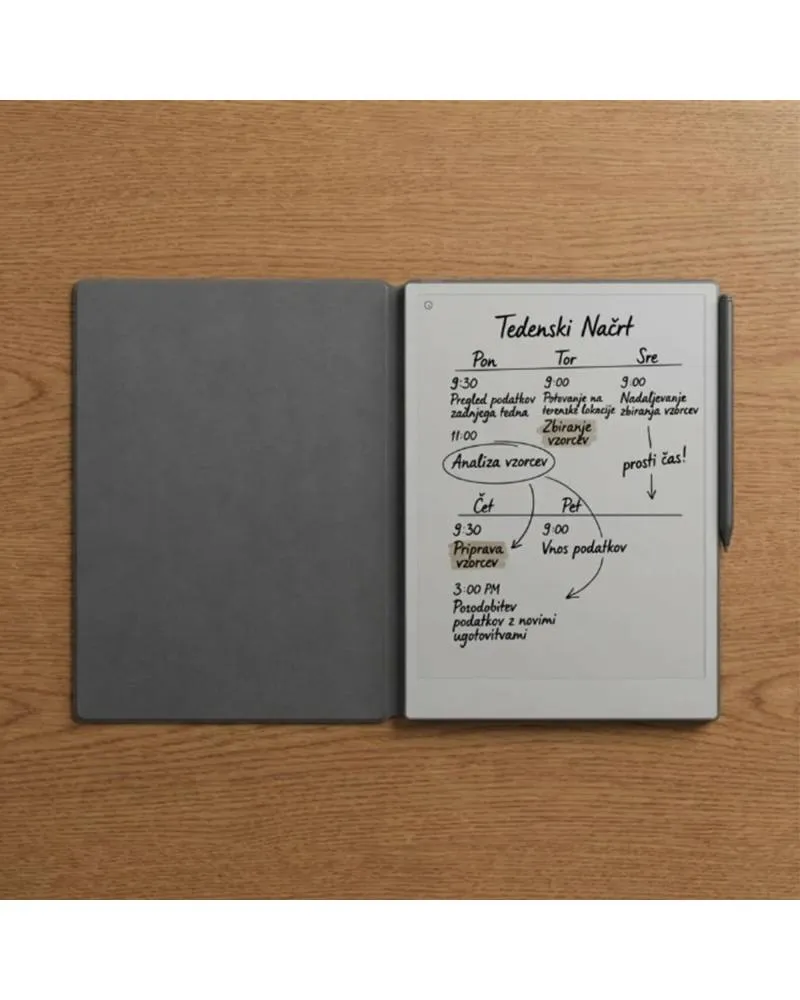 Tedenski Načrt
Pon
Tor
Sre
9:30
Pregled podatkov
zadnjega tedna
11:00
Analiza vzorcev
9:00
Potovanje na
terenske lokacije
Zbiranje
vzorcev
9:00
Nadaljevanje
zbiranja vzorcev
prosti čas!
Čet
Pet
9:30
Priprava
vzorcev
3:00 PM
Posodobitev
podatkov z novimi
ugotovitvami
9:00
Vnos podatkov